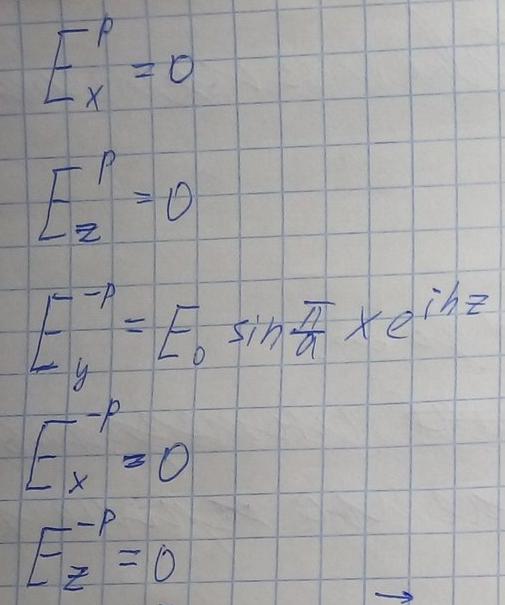 E_x^p = 0
E_z^p = 0
E_y^{-p} = E_0 sin π/a x e^{ihz}
E_x^{-p} = 0
E_z^{-p} = 0
→